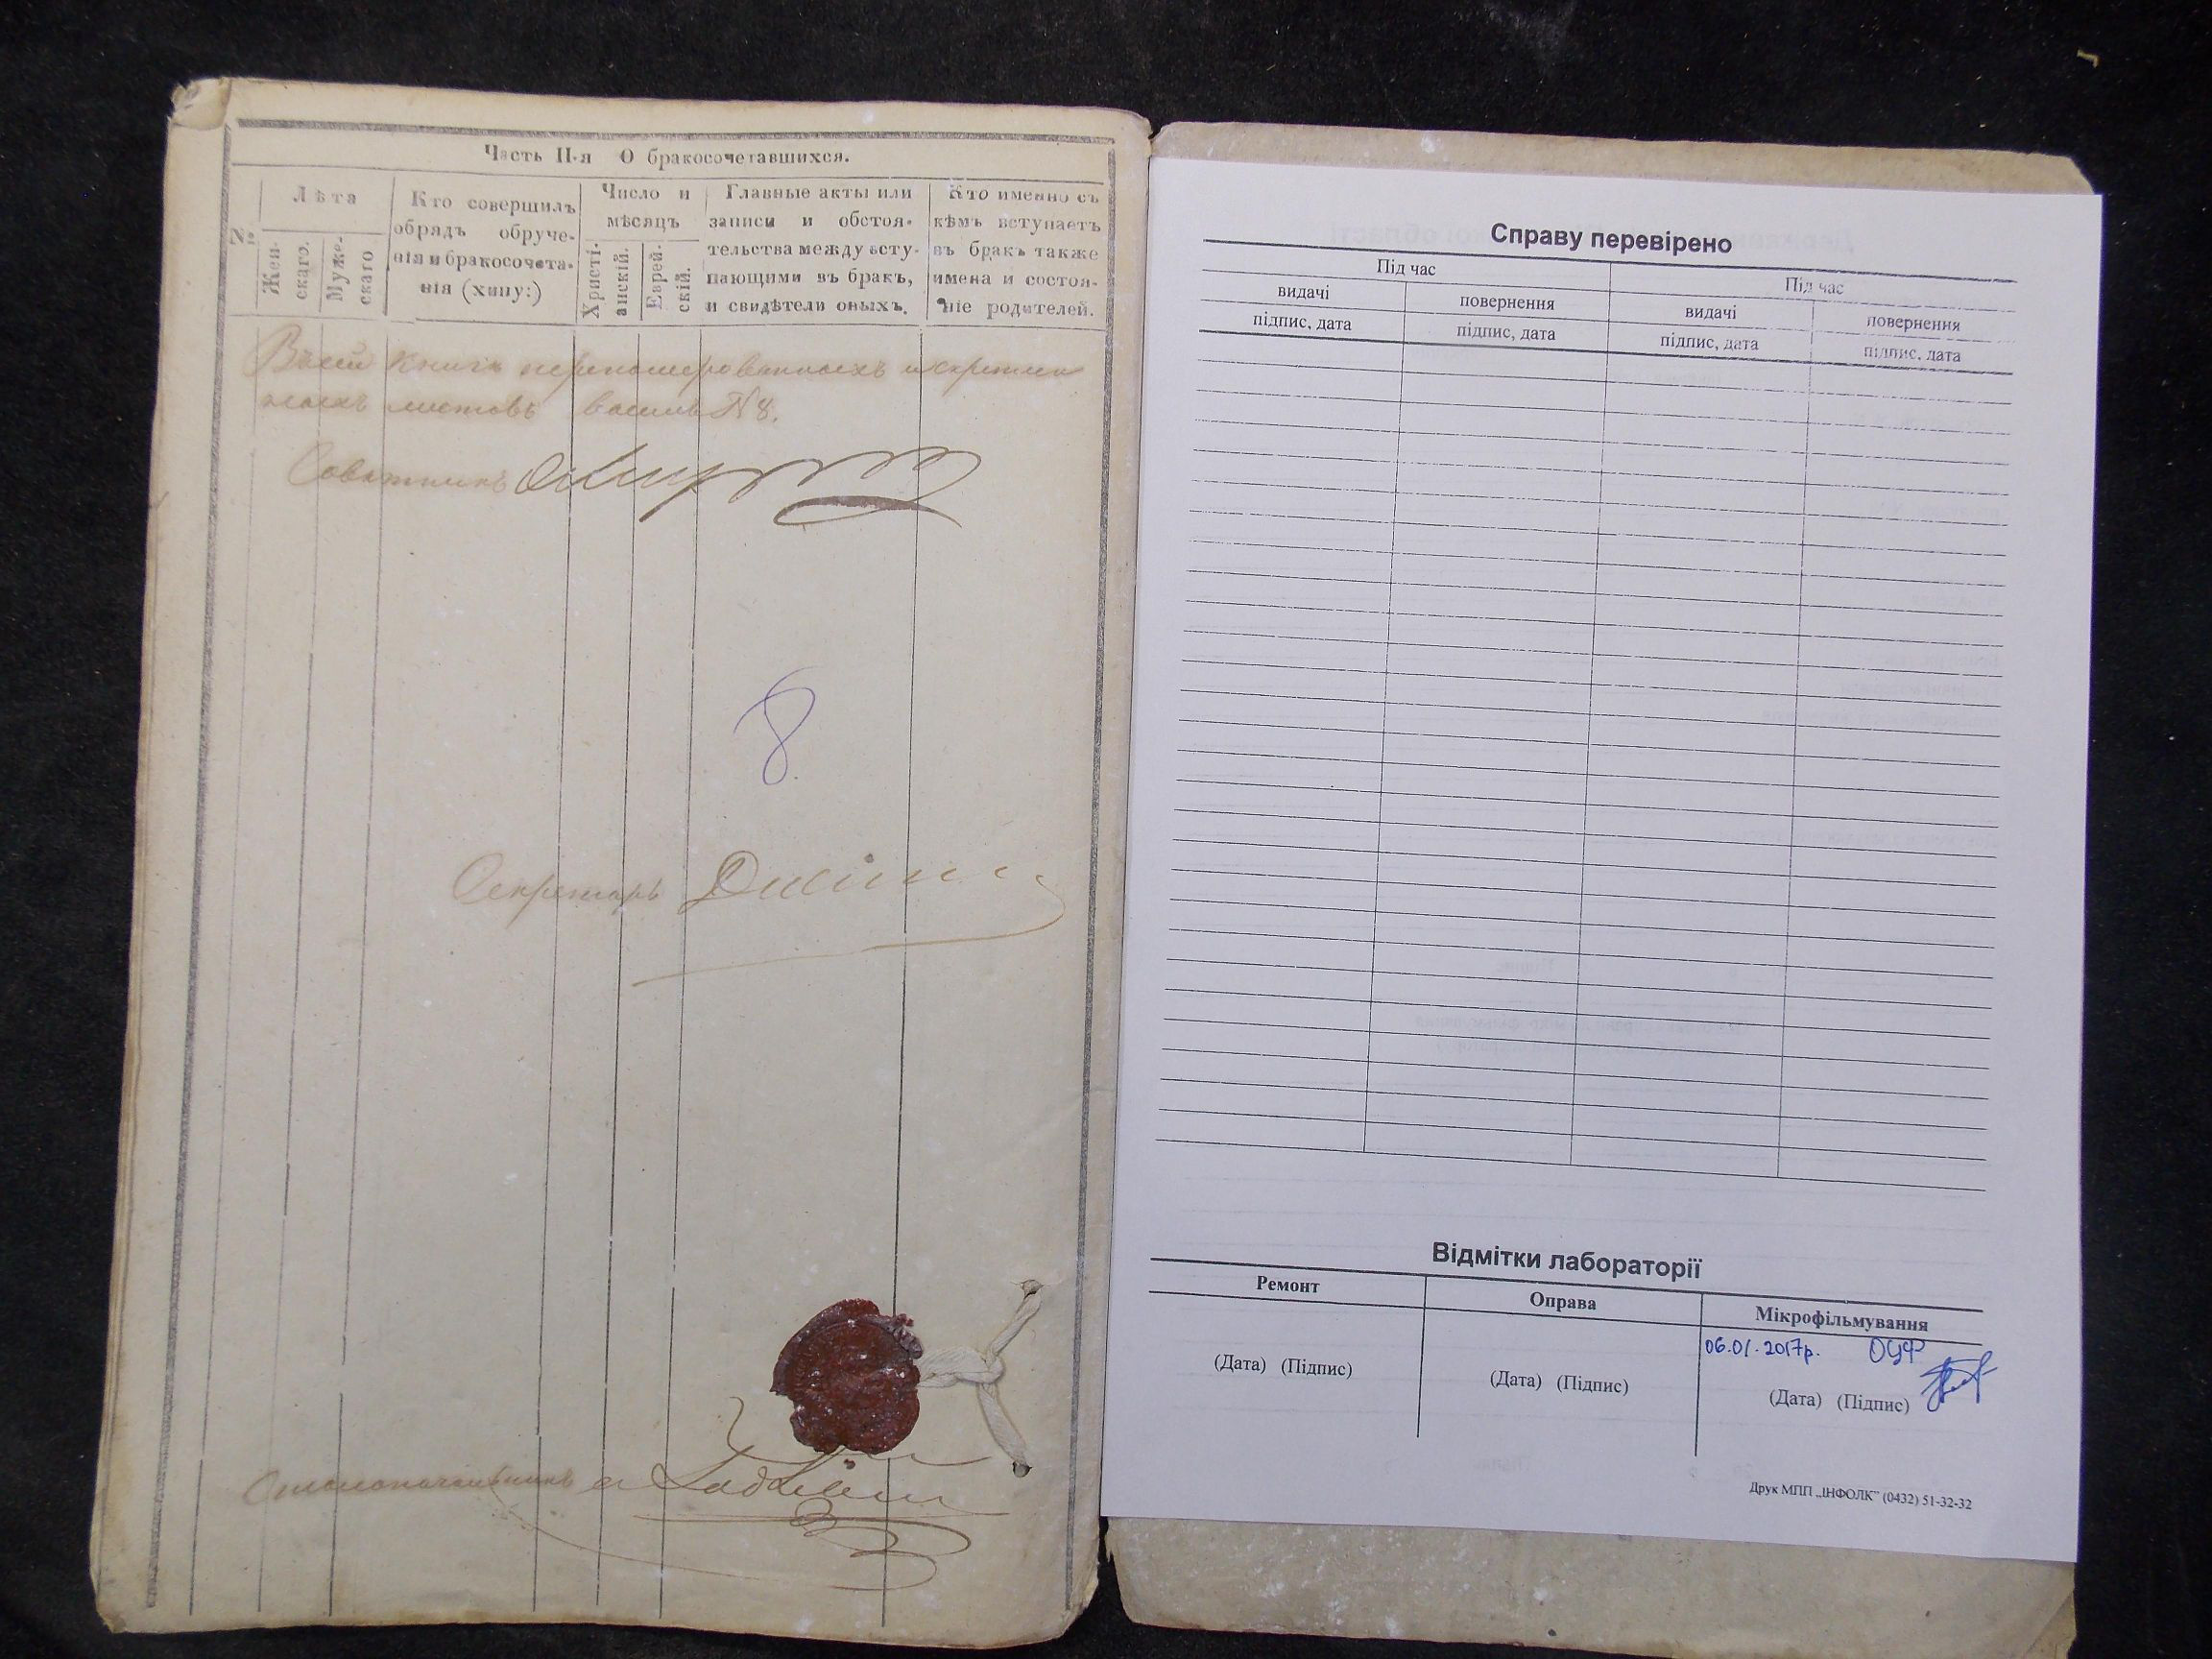 Часть II-я О бракосочетавшихся.
№
Лѣта
Жен-
скаго.
Муже-
скаго
Кто совершилъ
обрядъ обруче-
нія и бракосочета-
нія (хипу:)
Число и
мѣсяцъ
Христі-
анскій.
Еврей-
скій.
Главные акты или
записи и обстоя-
тельства между всту-
пающими въ бракъ,
и свидѣтели оныхъ.
Кто именно съ
кѣмъ вступаетъ
въ бракъ также
имена и состоя-
ніе родителей.
Въ сей книгѣ перенумерованныхъ и скреплен
ныхъ листовъ восемь №8.
Совѣтникъ
8
Секретарь
Столоначальникъ
Справу перевірено
Під час
Під час
видачі
повернення
видачі
повернення
підпис, дата
підпис, дата
підпис, дата
підпис, дата
Відмітки лабораторії
Ремонт
Оправа
Мікрофільмування
06.01.2017р. ОЦФ
(Дата) (Підпис)
(Дата) (Підпис)
(Дата) (Підпис)
Друк МПП „ІНФОЛК” (0432) 51-32-32